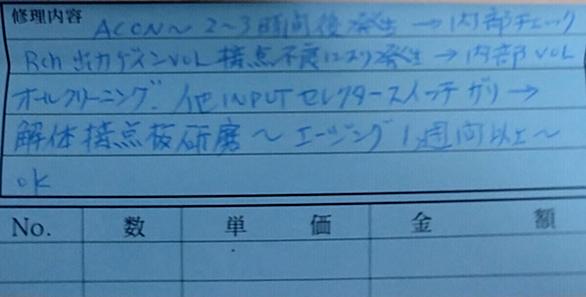 修理内容 ACON～2～3時間後発生→内部チェック
Rch 出力ゲインVOL 接点不良により発生→内部VOL
オールクリーニング. 他INPUTセレクタースイッチガリ→
解体接点板研磨～エージング1週間以上～
ok
No. 数 単価 金額